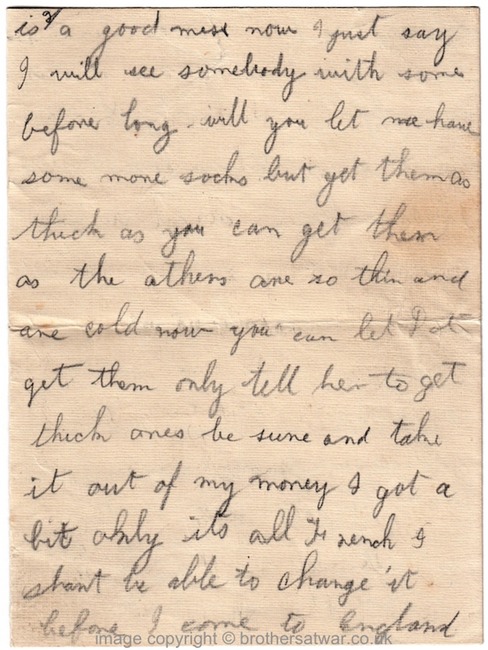 2
is a good mess now I just say
I will see somebody with some
before long will you let me have
some more socks but get them as
thick as you can get them
as the athers are so thin and
are cold now you can let Dot
get them only tell her to get
thick ones be sure and take
it out of my money I got a
bit only its all French I
shant be able to change it
before I come to England
image copyright © brothersatwar.co.uk